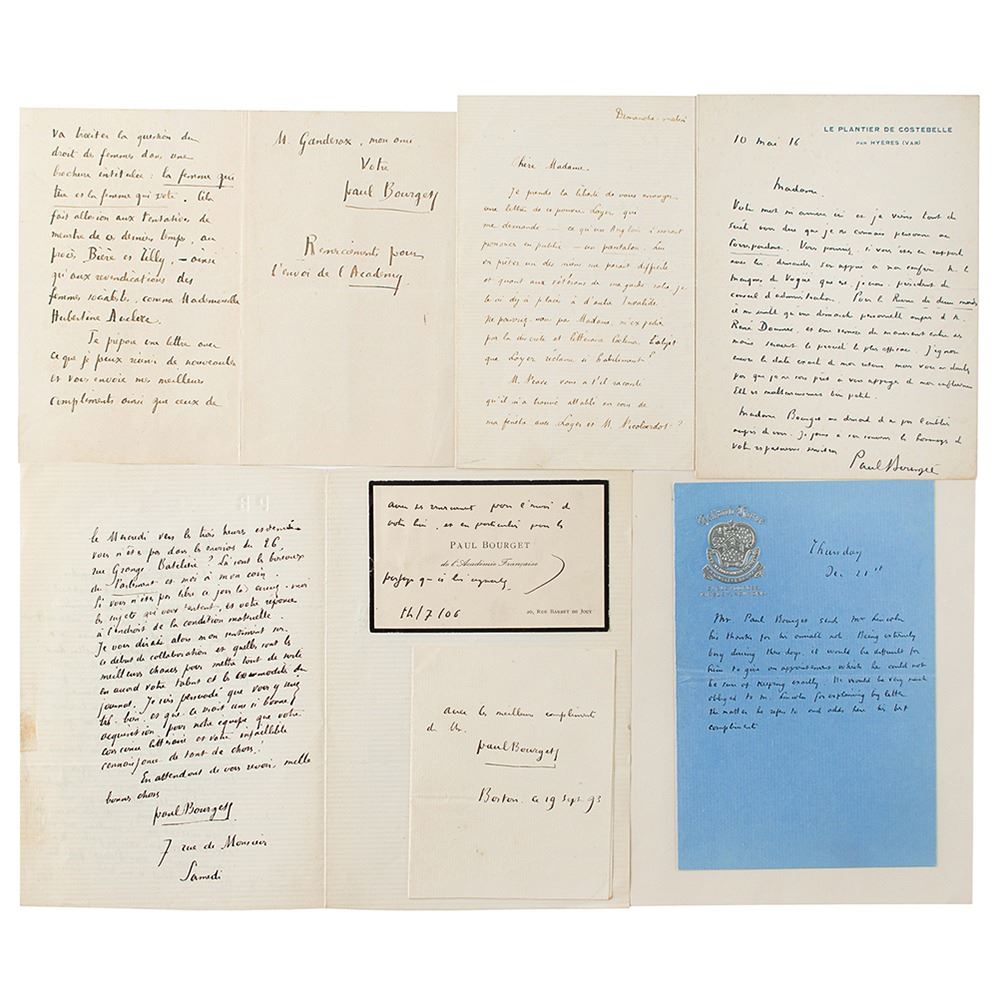 va traiter la question du
droit des femmes dans une
brochure intitulée : la femme qui
tue et la femme qui vote. Cela
fait allusion aux tentatives de
meurtre de ces derniers temps, au
procès Bière et Tilly, - ainsi
qu'aux revendications des
femmes socialistes, comme Mademoiselle
Hubertine Auclerc.
Je prépare une lettre avec
ce que je peux réunir de nouveautés
et vous envoie mes meilleurs
compliments ainsi que ceux de
M. Ganderax, mon ami
Votre
Paul Bourget
Remerciements pour
l'envoi de l'Academy.
Dimanche-matin
Chère Madame,
Je prends la liberté de vous envoyer
une lettre de ce pauvre Loyer qui
me demande - ce qu'un Anglais n'oserait
prononcer en public - un pantalon. Un
en pièces des miens me parait difficile
et quant aux
le voi déjà placé à d'autres
Ne pourriez-vous pas Madame,
par la et littéraire l'objet
que Loyer réclame si habilement ?
M. vous a t'il raconté
qu'il m'a trouvé attablé au coin de
ma fenêtre avec Loyer et M. Nicolardot ?
LE PLANTIER DE COSTEBELLE
PAR HYÈRES (VAR)
10 mai 16
Madame
Votre mot m'arrive ici et je viens tout de
suite vous dire que je ne connais personne au
Correspondant. Vous pourriez, si vous êtes en rapport
avec lui, demander son appui à mon confrère M. le
marquis de Vogüé qui est, je crois, président du
conseil d'administration. Pour la Revue des deux mondes
il me semble qu'une démarche personnelle auprès de M.
René Doumic, et une remise du manuscrit entre ses
mains seraient le procédé le plus efficace. J'ignore
encore la date exacte de mon retour. Mais vous ne doutez
pas que je ne sois prêt à vous appuyer de mon influence
Elle est malheureusement bien petite.
Madame Bourget me demande de ne pas l'oublier
auprès de vous. Je joins à son souvenir l'hommage de
votre respectueux serviteur
Paul Bourget
le Mercredi vers les trois heures et demie
vous n'êtes pas dans les environs du 26,
rue Grange Batelière ? Là sont les bureaux
du Parlement et moi à mon coin.
Si vous n'êtes pas libre ce jour là envoyez-moi
les sujets qui vous tentent, et votre réponse
à l'endroit de la condition matérielle.
Je vous dirais alors mon sentiment sur
ce début de collaboration et quelles sont les
meilleures chances pour mettre tout de suite
en accord votre talent et les commodités du
journal. Je suis persuadé que vous y serez
très bien et que ce serait une si bonne
acquisition pour notre équipe que votre
conscience littéraire et votre infaillible
connaissance de tant de choses !
En attendant de vous revoir, mille
bonnes choses
Paul Bourget
7 rue de Monsieur
Samedi
avec ses remerciements pour l'envoi de
votre livre, et en particulier pour les
PAUL BOURGET
de l'Académie Française
passages qui le lui
16/7/06
20, RUE BARBET DE JOUY
avec les meilleurs compliments
de Mr.
Paul Bourget
Boston, ce 19 Sept. 93
Thursday
Dec 21st
Mr Paul Bourget sends Mr Lincoln
his thanks for his note. Being extremely
busy during these days, it would be difficult for
him to give an appointment which he could not
be sure of keeping exactly. He would be very much
obliged to Mr. Lincoln for explaining by letter
the matter he refers to and adds here his best
compliments